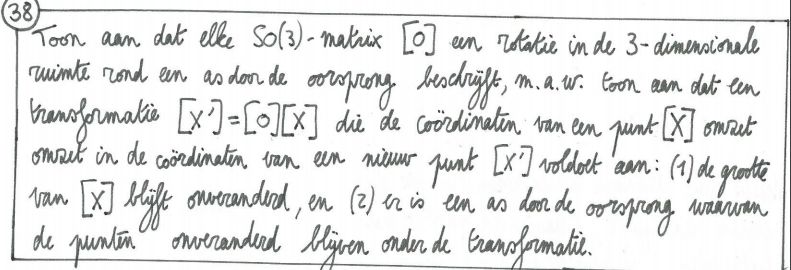 38
Toon aan dat elke SO(3)-matrix [O] een rotatie in de 3-dimensionale
ruimte rond een as door de oorsprong beschrijft, m.a.w. toon aan dat een
transformatie [X']=[O][X] die de coördinaten van een punt [X] omzet
omzet in de coördinaten van een nieuw punt [X'] voldoet aan: (1) de grootte
van [X] blijft onveranderd, en (2) er is een as door de oorsprong waarvan
de punten onveranderd blijven onder de transformatie.